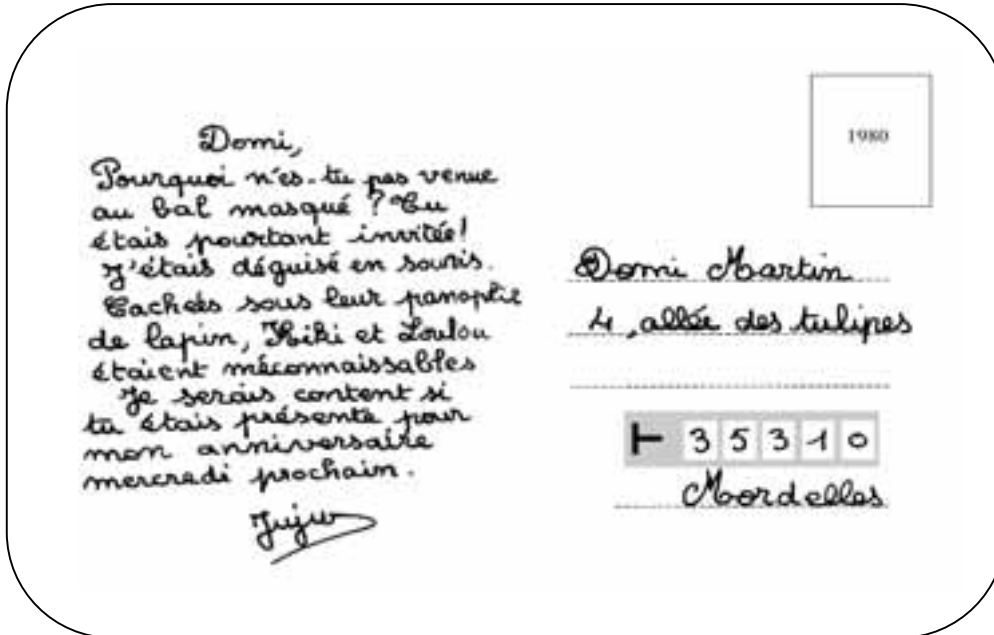 Domi,
Pourquoi n'es-tu pas venue
au bal masqué ? Tu
étais pourtant invitée!
J'étais déguisé en souris.
Cachées sous leur panoplie
de lapin, Kiki et Loulou
étaient méconnaissables
Je serais content si
tu étais présente pour
mon anniversaire
mercredi prochain.
Juju
1980
Domi Martin
4, allée des tulipes
35310
Mordelles